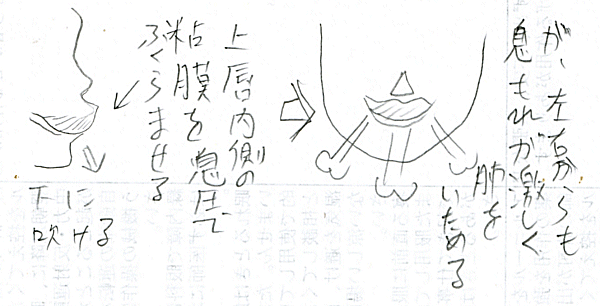 が、左右からも
息もれが激しく
肺を
いためる
上唇内側の
粘膜を息圧で
ふくらませる
下に
吹ける